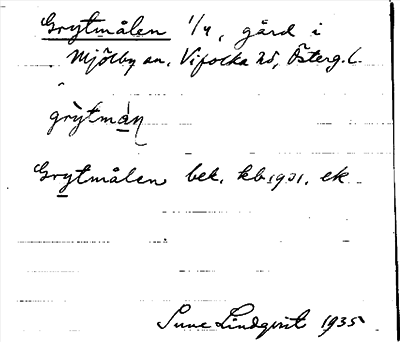 Grytmålen 1/4, gård i
Mjölby sn, Vifolka hd, Österg. l.
grỳtmán
Grytmålen bek. kb 1921. ek.
Sune Lindqvist 1935